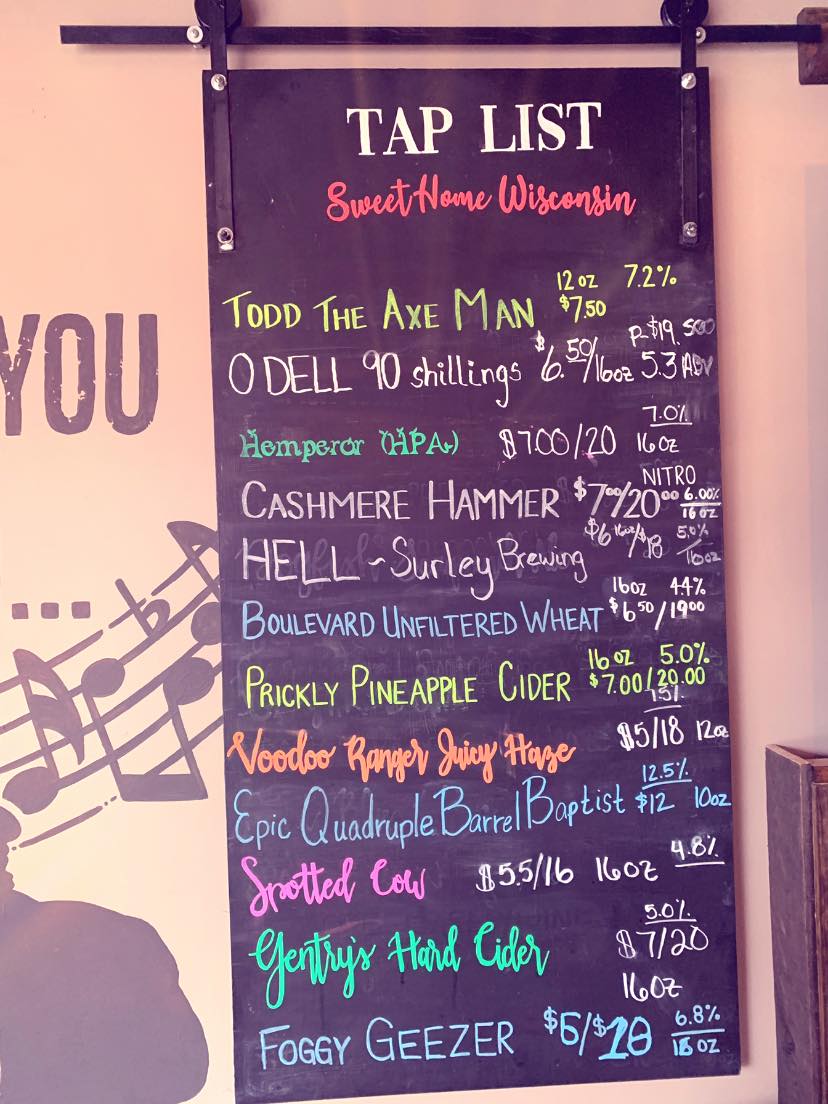 TAP LIST
Sweet Home Wisconsin
YOU
12 oz 7.2%
TODD THE AXE MAN $7.50
P $19.
ODELL 90 shillings $6.50/16oz 5.3 ABV
7.0%
Hemperor (HPA) $7.00/20 16oz
NITRO
CASHMERE HAMMER $7⁰⁰/20⁰⁰ 6.00%
16oz
HELL ~ Surley Brewing $6 16oz/$18 5.0%
16oz
16oz 4.4%
BOULEVARD UNFILTERED WHEAT $6⁵⁰/19⁰⁰
16 oz 5.0%
PRICKLY PINEAPPLE CIDER $7.00/20.00
Voodoo Ranger Juicy Haze $5/18 12oz
12.5%
Epic Quadruple Barrel Baptist $12 10oz
4.8%
Spotted Cow $5.5/16 16oz
5.0%
Gentry's Hard Cider $7/20
16oz
6.8%
FOGGY GEEZER oz